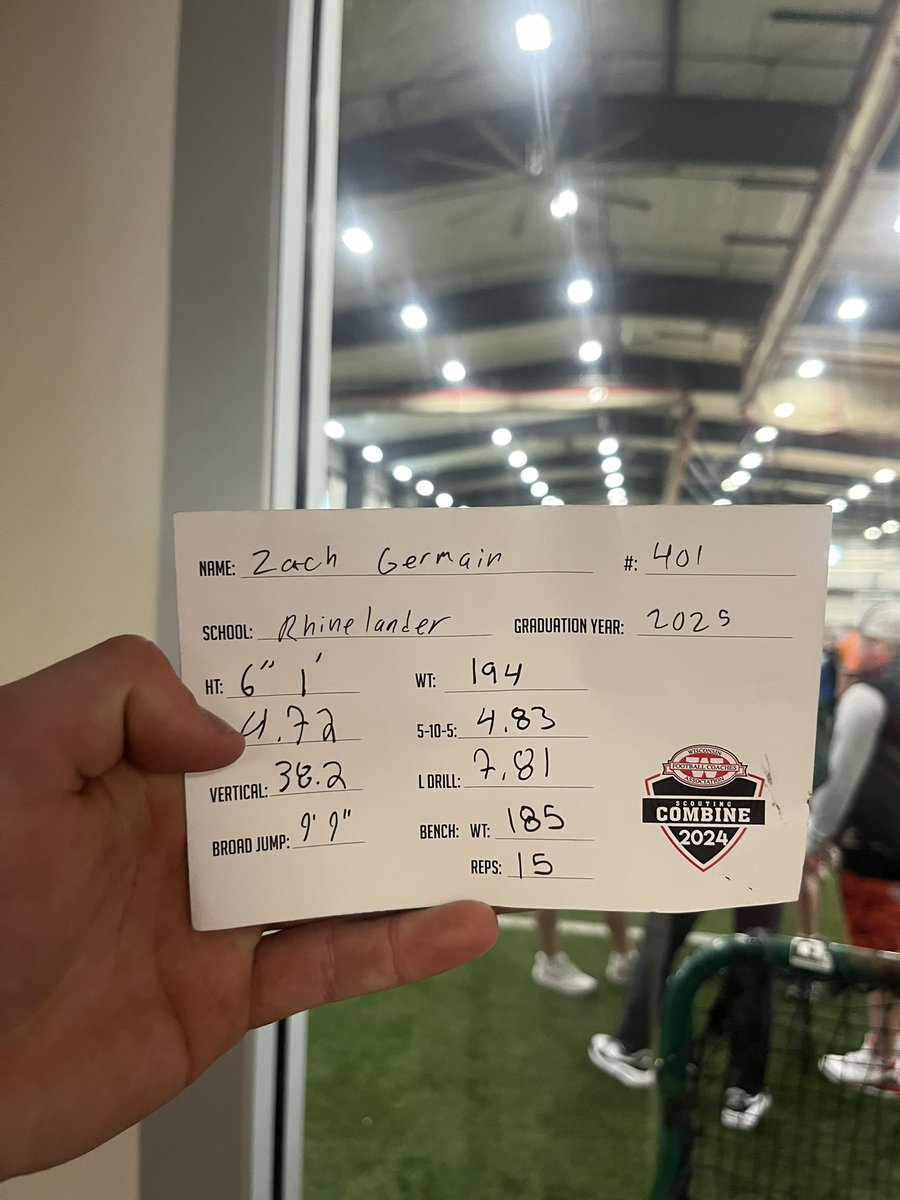 NAME: Zach Germain #: 401
SCHOOL: Rhinelander GRADUATION YEAR: 2025
HT: 6" 1' WT: 194
4.72 5-10-5: 4.83
VERTICAL: 38.2 L DRILL: 7.81
BROAD JUMP: 9' 9" BENCH: WT: 185
REPS: 15
WISCONSIN
FOOTBALL COACHES
ASSOCIATION
SCOUTING
COMBINE
2024